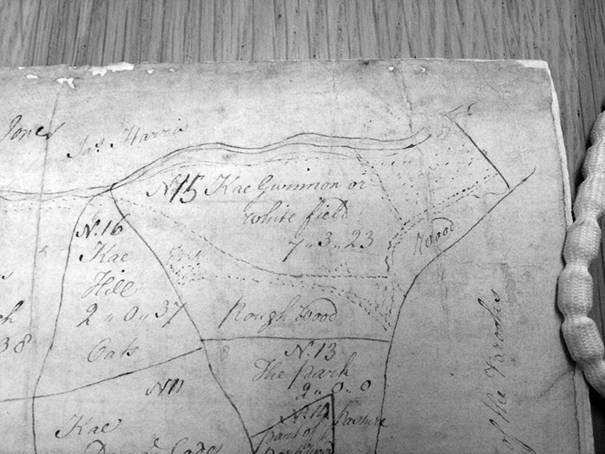 Jones
Jas. Harris
N.15 Kae Gwinnion or
White field
7 " 3 " 23
Wood
N.16
Kae
Hill
2 " 0 " 37
Oats
38
Rough Wood
N.13
The Park
2 " 0 " 0
N11
Kae
Pasture
part of
of the Brooks